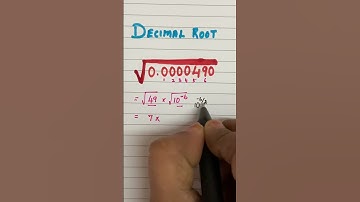 DECIMAL ROOT
√0.0000490
1 2 3 4 5 6
= √49 × √10⁻⁶
= 7 ×